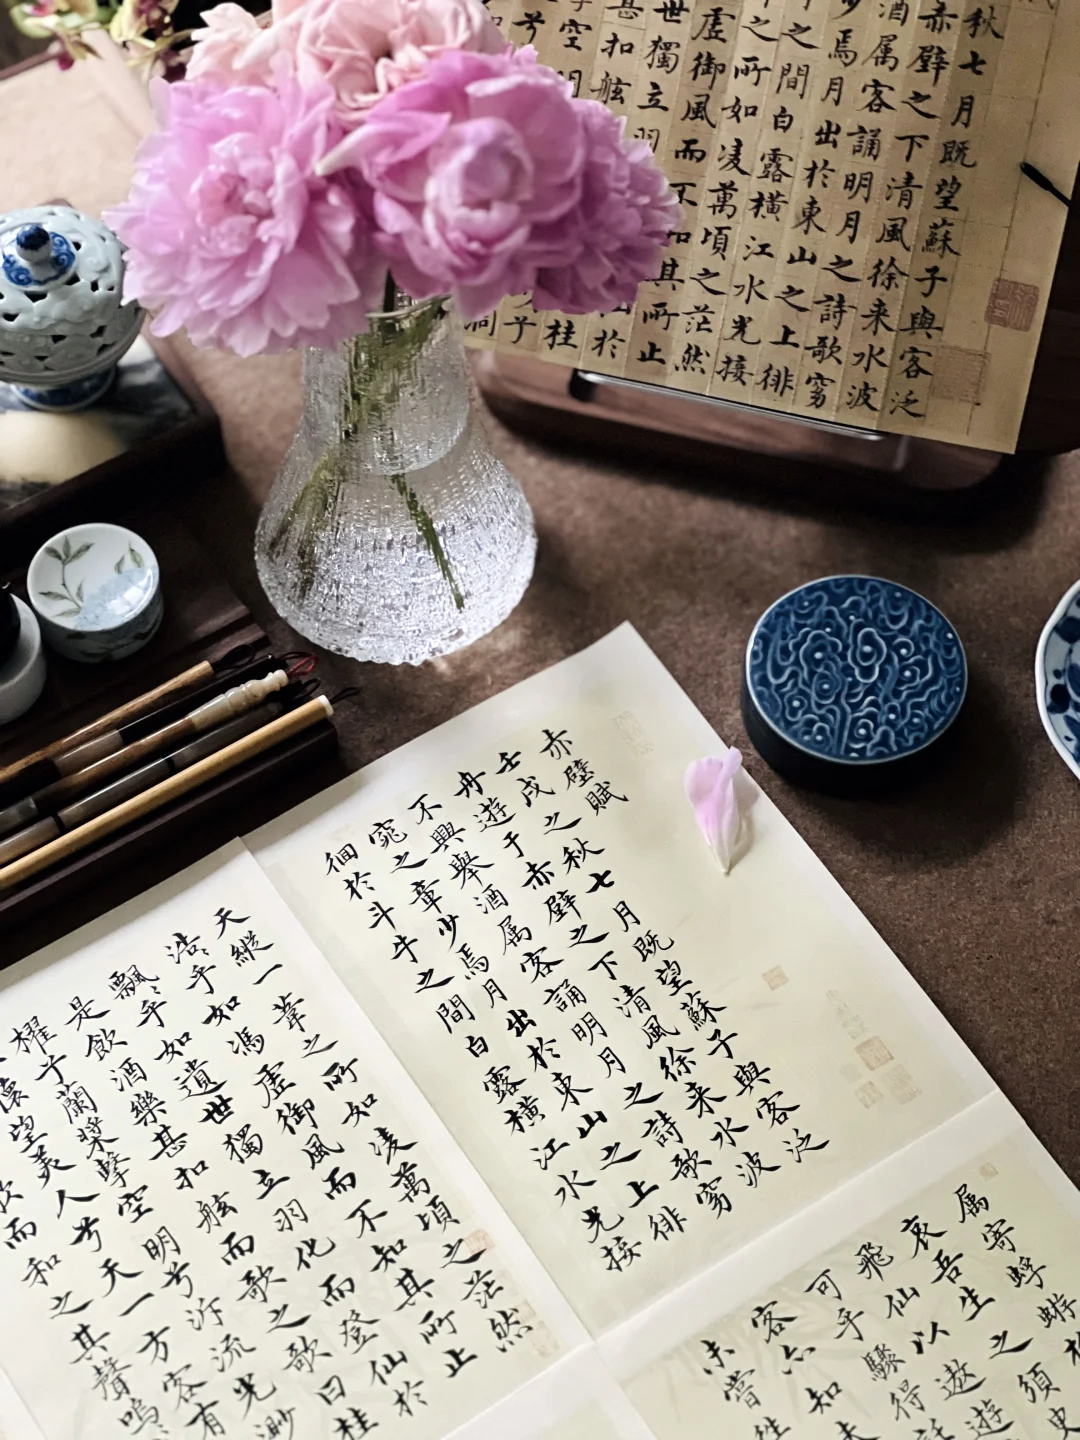 秋七月既望蘇子與客泛
赤壁之下清風徐来水波
酒属客誦明月之詩歌窈
焉月出於東山之上徘
之間白露橫江水光接
之所如凌萬頃之茫然
虛御風而不知其所止
世獨立羽
甚扣舷 於
空明 桂
兮 子
赤壁賦
壬戌之秋七月既望蘇子與客泛
舟遊于赤壁之下清風徐来水波
不興舉酒属客誦明月之詩歌窈
窕之章少焉月出於東山之上徘
徊於斗牛之間白露橫江水光接
天縱一葦之所如凌萬頃之茫然
浩〻乎如馮虛御風而不知其所止
飄〻乎如遺世獨立羽化而登仙於
是飲酒樂甚扣舷而歌之歌曰桂
櫂兮蘭槳擊空明兮泝流光渺
懷望美人兮天一方客有
而和之其聲嗚
属寄蜉蝣於
哀吾生之須臾
飛仙以遨遊
可乎驟得託
客亦知夫
未嘗往